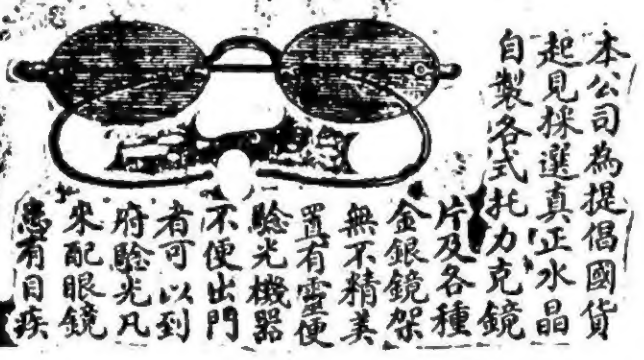 本公司為提倡國貨
起見採選真正水晶
自製各式托力克鏡
片及各種
金銀鏡架
無不精美
置有靈便
驗光機器
不便出門
者可以到
府驗光凡
來配眼鏡
患有目疾